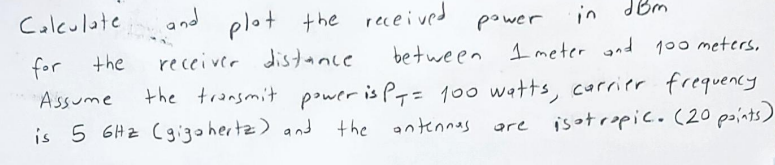 Calculate and plot the received power in dBm
for the receiver distance between 1 meter and 100 meters.
Assume the transmit power is P_T = 100 watts, carrier frequency
is 5 GHz (gigahertz) and the antennas are isotropic. (20 points)